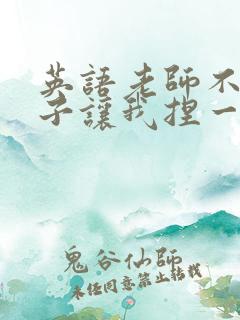 英語老師不
子讓我捏一
鬼谷仙師
未任同意禁止转载